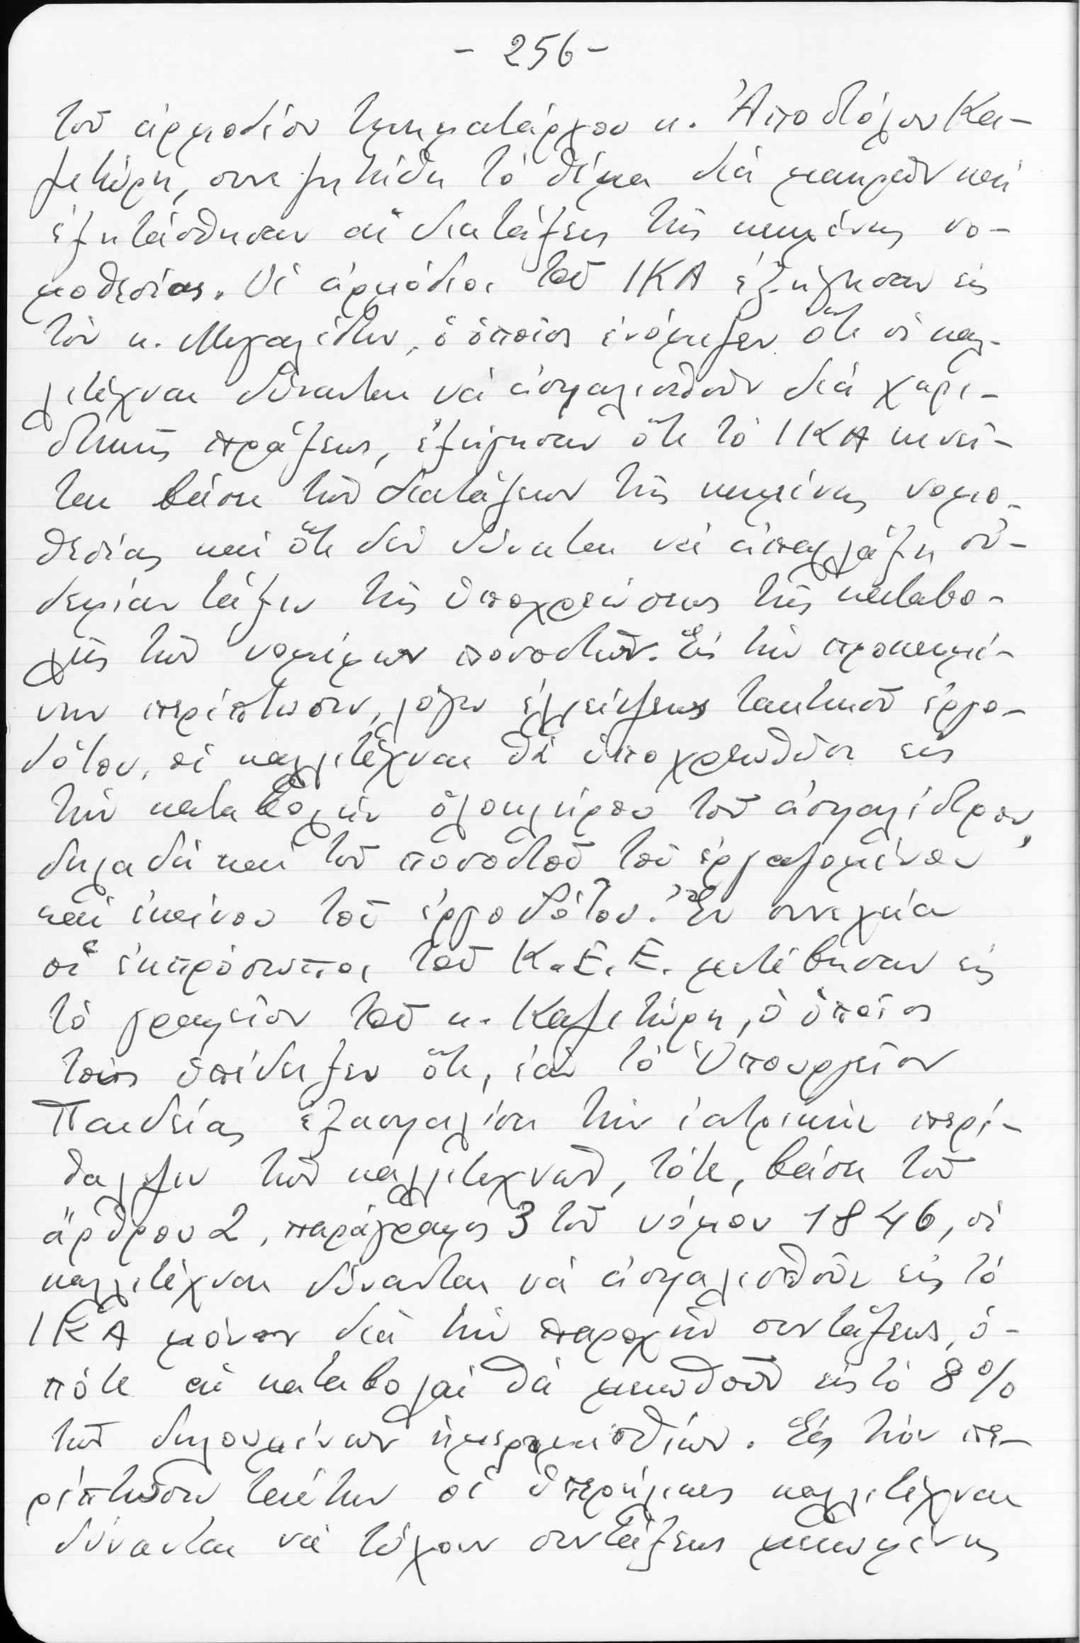 - 256 -
τοῦ ἁρμοδίου τμηματάρχου κ. Ἀποστόλου Κα-
ζετώρη, συνεζητήθη τὸ θέμα διὰ μακρῶν καὶ
ἐξητάσθησαν αἱ διατάξεις τῆς κειμένης νο-
μοθεσίας. Οἱ ἁρμόδιοι τοῦ ΙΚΑ ἐξήγησαν εἰς
τὸν κ. Μιχαηλίδην, ὁ ὁποῖος ἐνόμιζεν ὅτι οἱ καλ-
λιτέχναι δύνανται νὰ ἀσφαλισθοῦν διὰ χαρι-
στικῆς πράξεως, ἐξήγησαν ὅτι τὸ ΙΚΑ κινεῖ-
ται βάσει τῶν διατάξεων τῆς κειμένης νομο-
θεσίας καὶ ὅτι δὲν δύναται νὰ ἀπαλλάξῃ οὐ-
δεμίαν τάξιν τῆς ὑποχρεώσεως τῆς καταβο-
λῆς τῶν νομίμων ποσοστῶν. Εἰς τὴν προκειμέ-
νην περίπτωσιν, λόγῳ ἐλλείψεως τακτικοῦ ἐργο-
δότου, οἱ καλλιτέχναι θὰ ὑποχρεωθῶσι εἰς
τὴν καταβολὴν ὁλοκλήρου τοῦ ἀσφαλίστρου,
δηλαδὴ καὶ τοῦ ποσοστοῦ τοῦ ἐργαζομένου
καὶ ἐκείνου τοῦ ἐργοδότου. Ἐν συνεχείᾳ
οἱ ἐκπρόσωποι τοῦ Κ.Ε.Ε. μετέβησαν εἰς
τὸ γραφεῖον τοῦ κ. Καζετώρη, ὁ ὁποῖος
τοὺς ὑπέδειξεν ὅτι, ἐὰν τὸ Ὑπουργεῖον
Παιδείας ἐξασφαλίσῃ τὴν ἰατρικὴν περί-
θαλψιν τῶν καλλιτεχνῶν, τότε, βάσει τοῦ
ἄρθρου 2, παράγραφος 3 τοῦ νόμου 1846, οἱ
καλλιτέχναι δύνανται νὰ ἀσφαλισθοῦν εἰς τὸ
ΙΚΑ μόνον διὰ τὴν παροχὴν συντάξεως, ὁ-
πότε αἱ καταβολαὶ θὰ μειωθοῦν εἰς τὸ 8%
τῶν δηλουμένων ἡμερομισθίων. Εἰς τὴν πε-
ρίπτωσιν ταύτην οἱ ὑπερήλικες καλλιτέχναι
δύνανται νὰ τύχουν συντάξεως μειωμένης